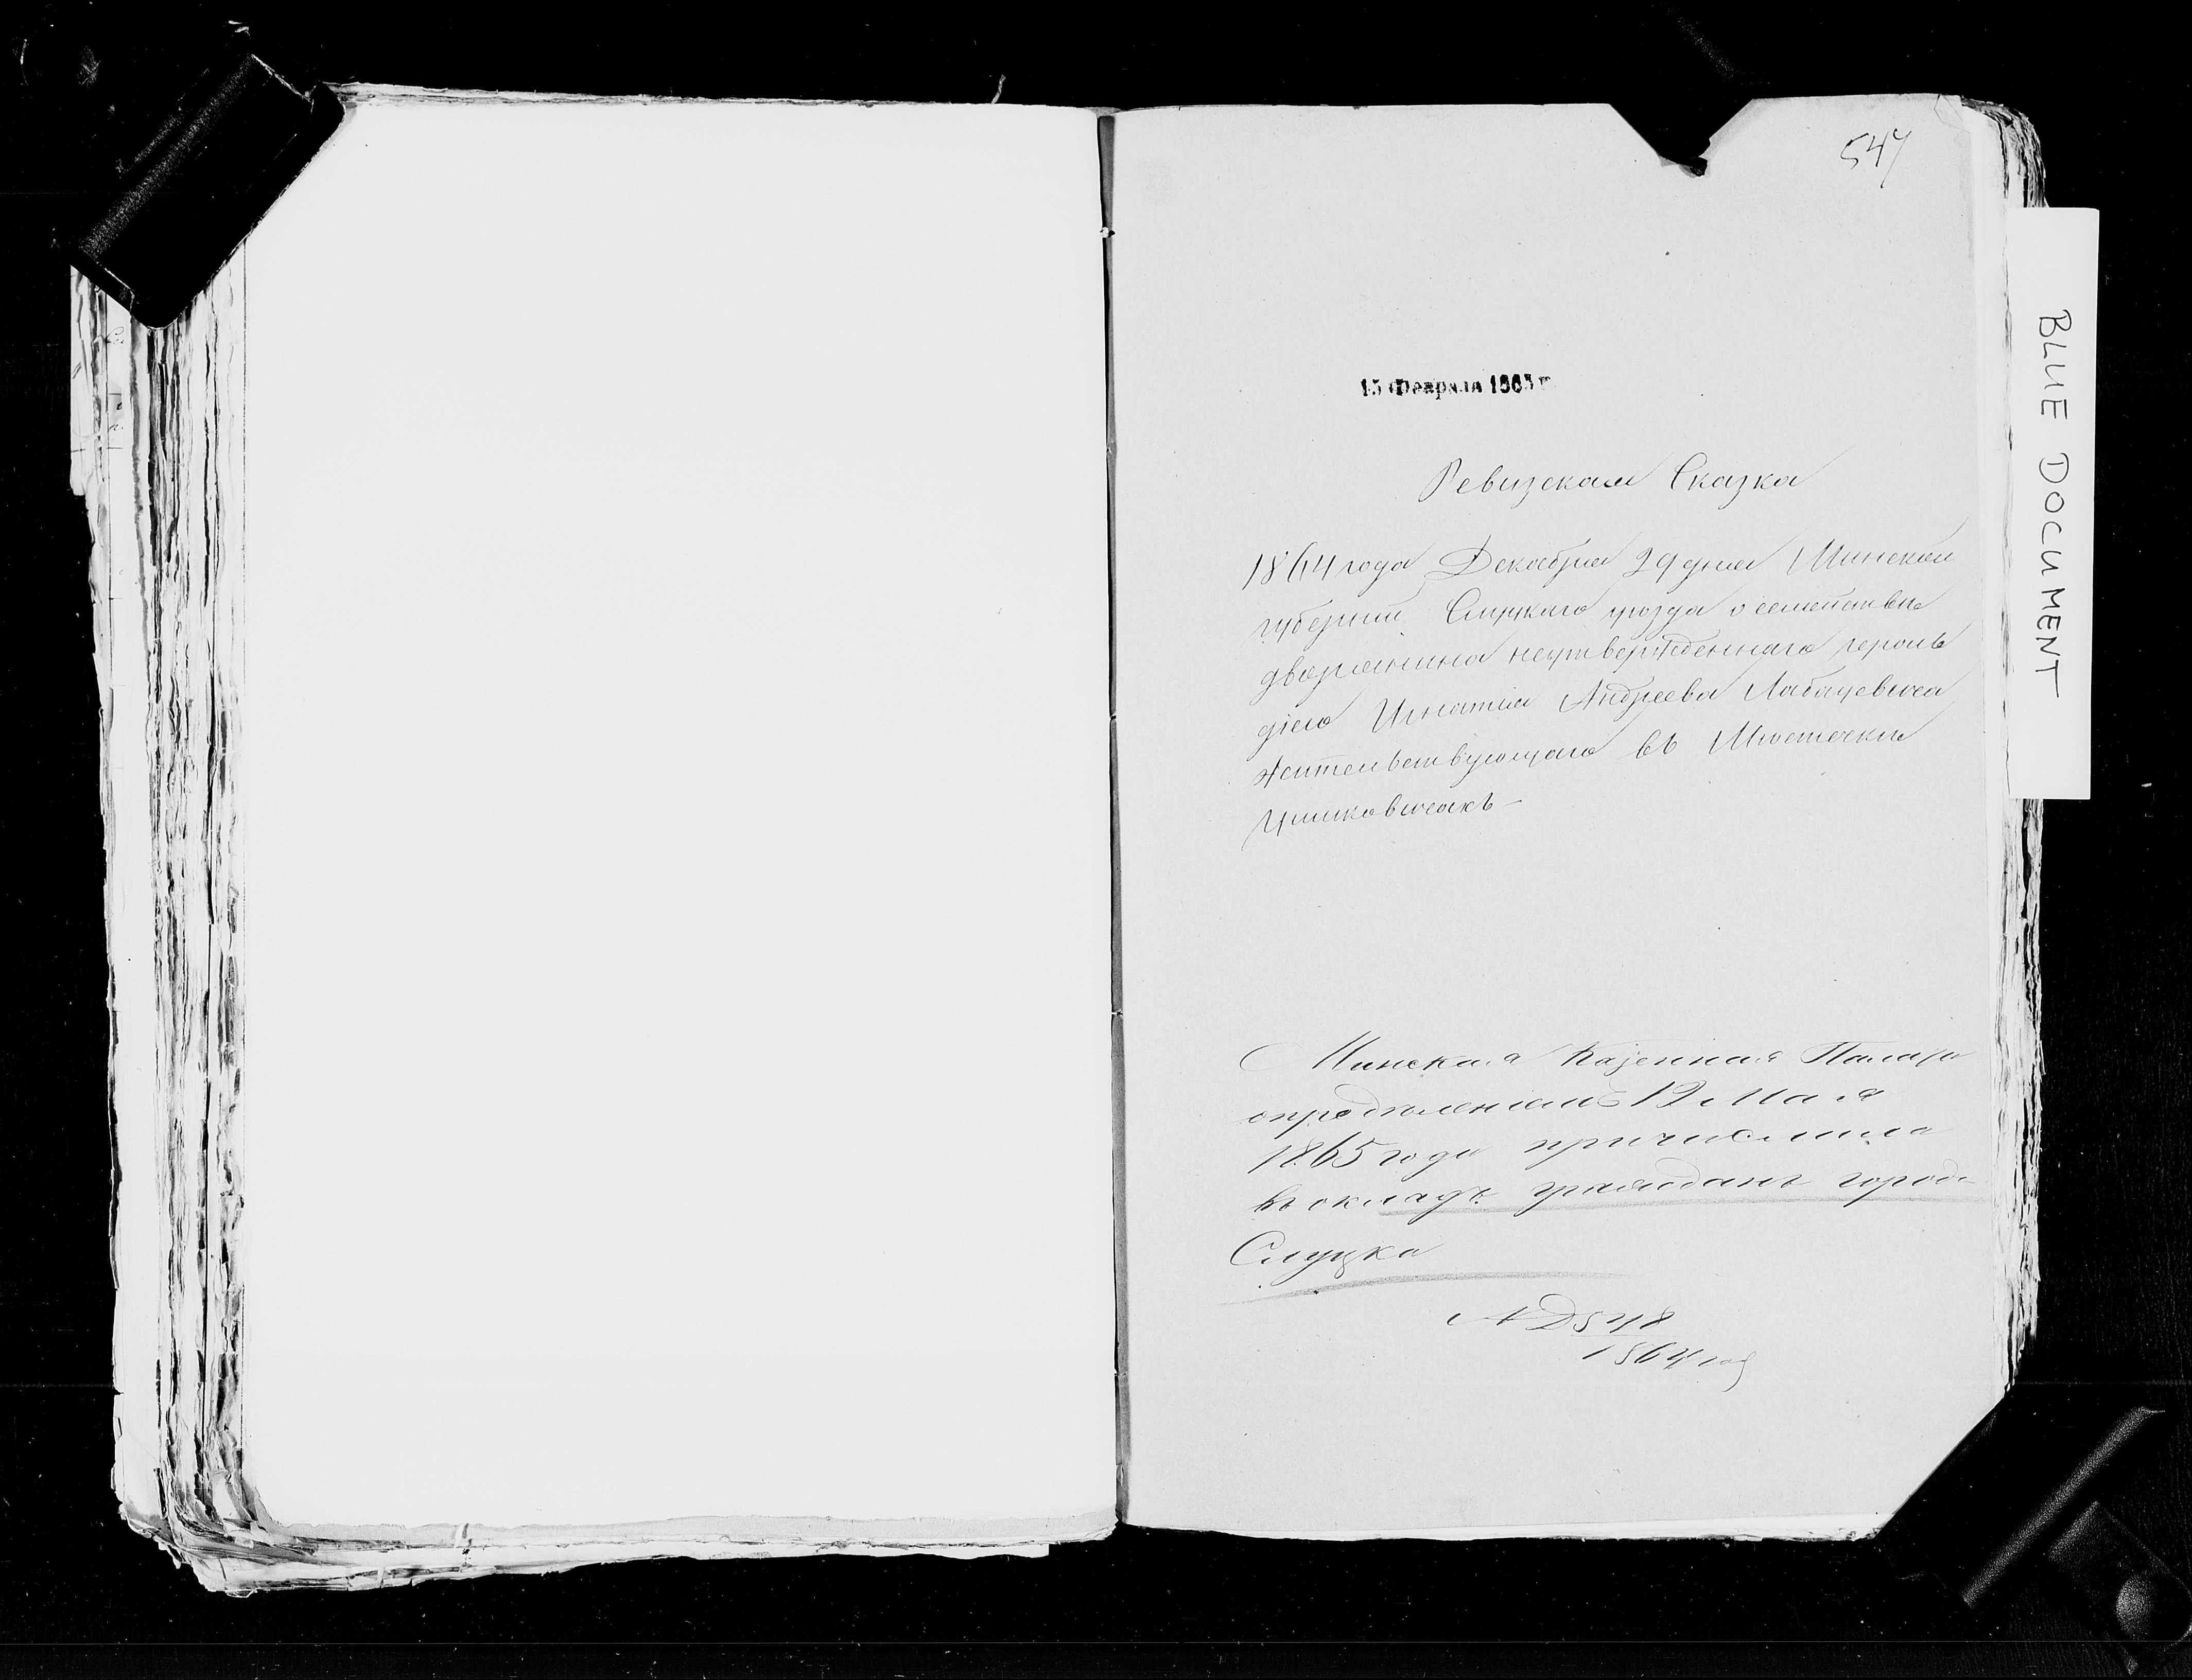 547
15 Февраля 1865 г.
Ревизская Сказка
1864 года Декабря 29 дня Минской
губернии Слуцкаго уѣзда о семействѣ
дворянина неутвержденнаго героль
діею Игнатія Андреева Лабацевича
жительствующаго въ Мѣстечкѣ
Тимковичахъ —
Минская Казенная Палата
опредѣленіемъ 19 Мая
1865 года причислила
въ окладъ гражданъ города
Слуцка
1864 год
BLUE DOCUMENT